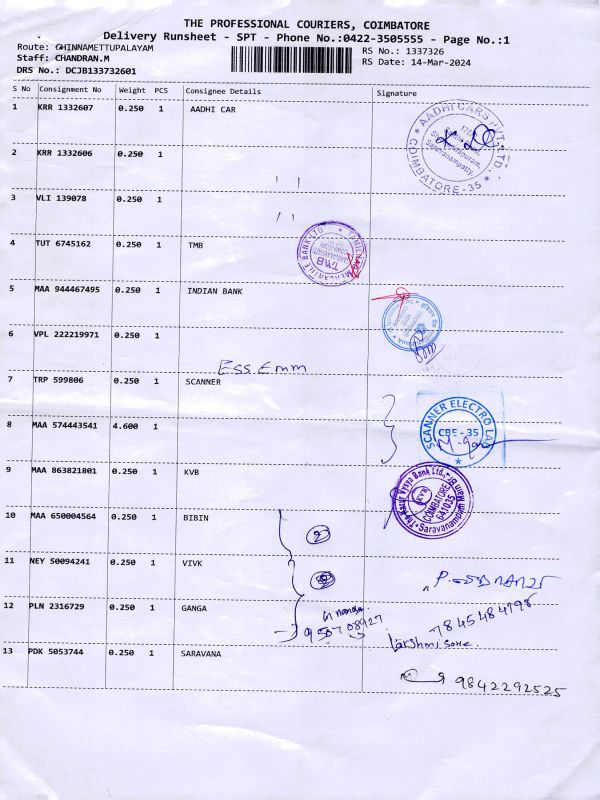 THE PROFESSIONAL COURIERS, COIMBATORE
Delivery Runsheet - SPT - Phone No.:0422-3505555 - Page No.:1
Route: CHINNAMETTUPALAYAM
Staff: CHANDRAN.M
DRS No.: DCJB133732601
RS No.: 1337326
RS Date: 14-Mar-2024
S No Consignment No Weight PCS Consignee Details Signature
1 KRR 1332607 0.250 1 AADHI CAR
AADHI CARS PVT. LTD.
Saravanampatty,
COIMBATORE-35
2 KRR 1332606 0.250 1
3 VLI 139078 0.250 1
4 TUT 6745162 0.250 1 TMB
TAMILNAD MERCANTILE BANK LTD
TMB
5 MAA 944467495 0.250 1 INDIAN BANK
6 VPL 222219971 0.250 1
Ess Emm
7 TRP 599806 0.250 1 SCANNER
SCANNER ELECTRO LAB
CBE-35
8 MAA 574443541 4.600 1
9 MAA 863821801 0.250 1 KVB
The Karur Vysya Bank Ltd.,
KVB
COIMBATORE
641035
Saravanampatti
10 MAA 650004564 0.250 1 BIBIN
2
11 NEY 50094241 0.250 1 VIVK
12 PLN 2316729 0.250 1 GANGA
9750708927
7845484798
13 PDK 5053744 0.250 1 SARAVANA
9842292525